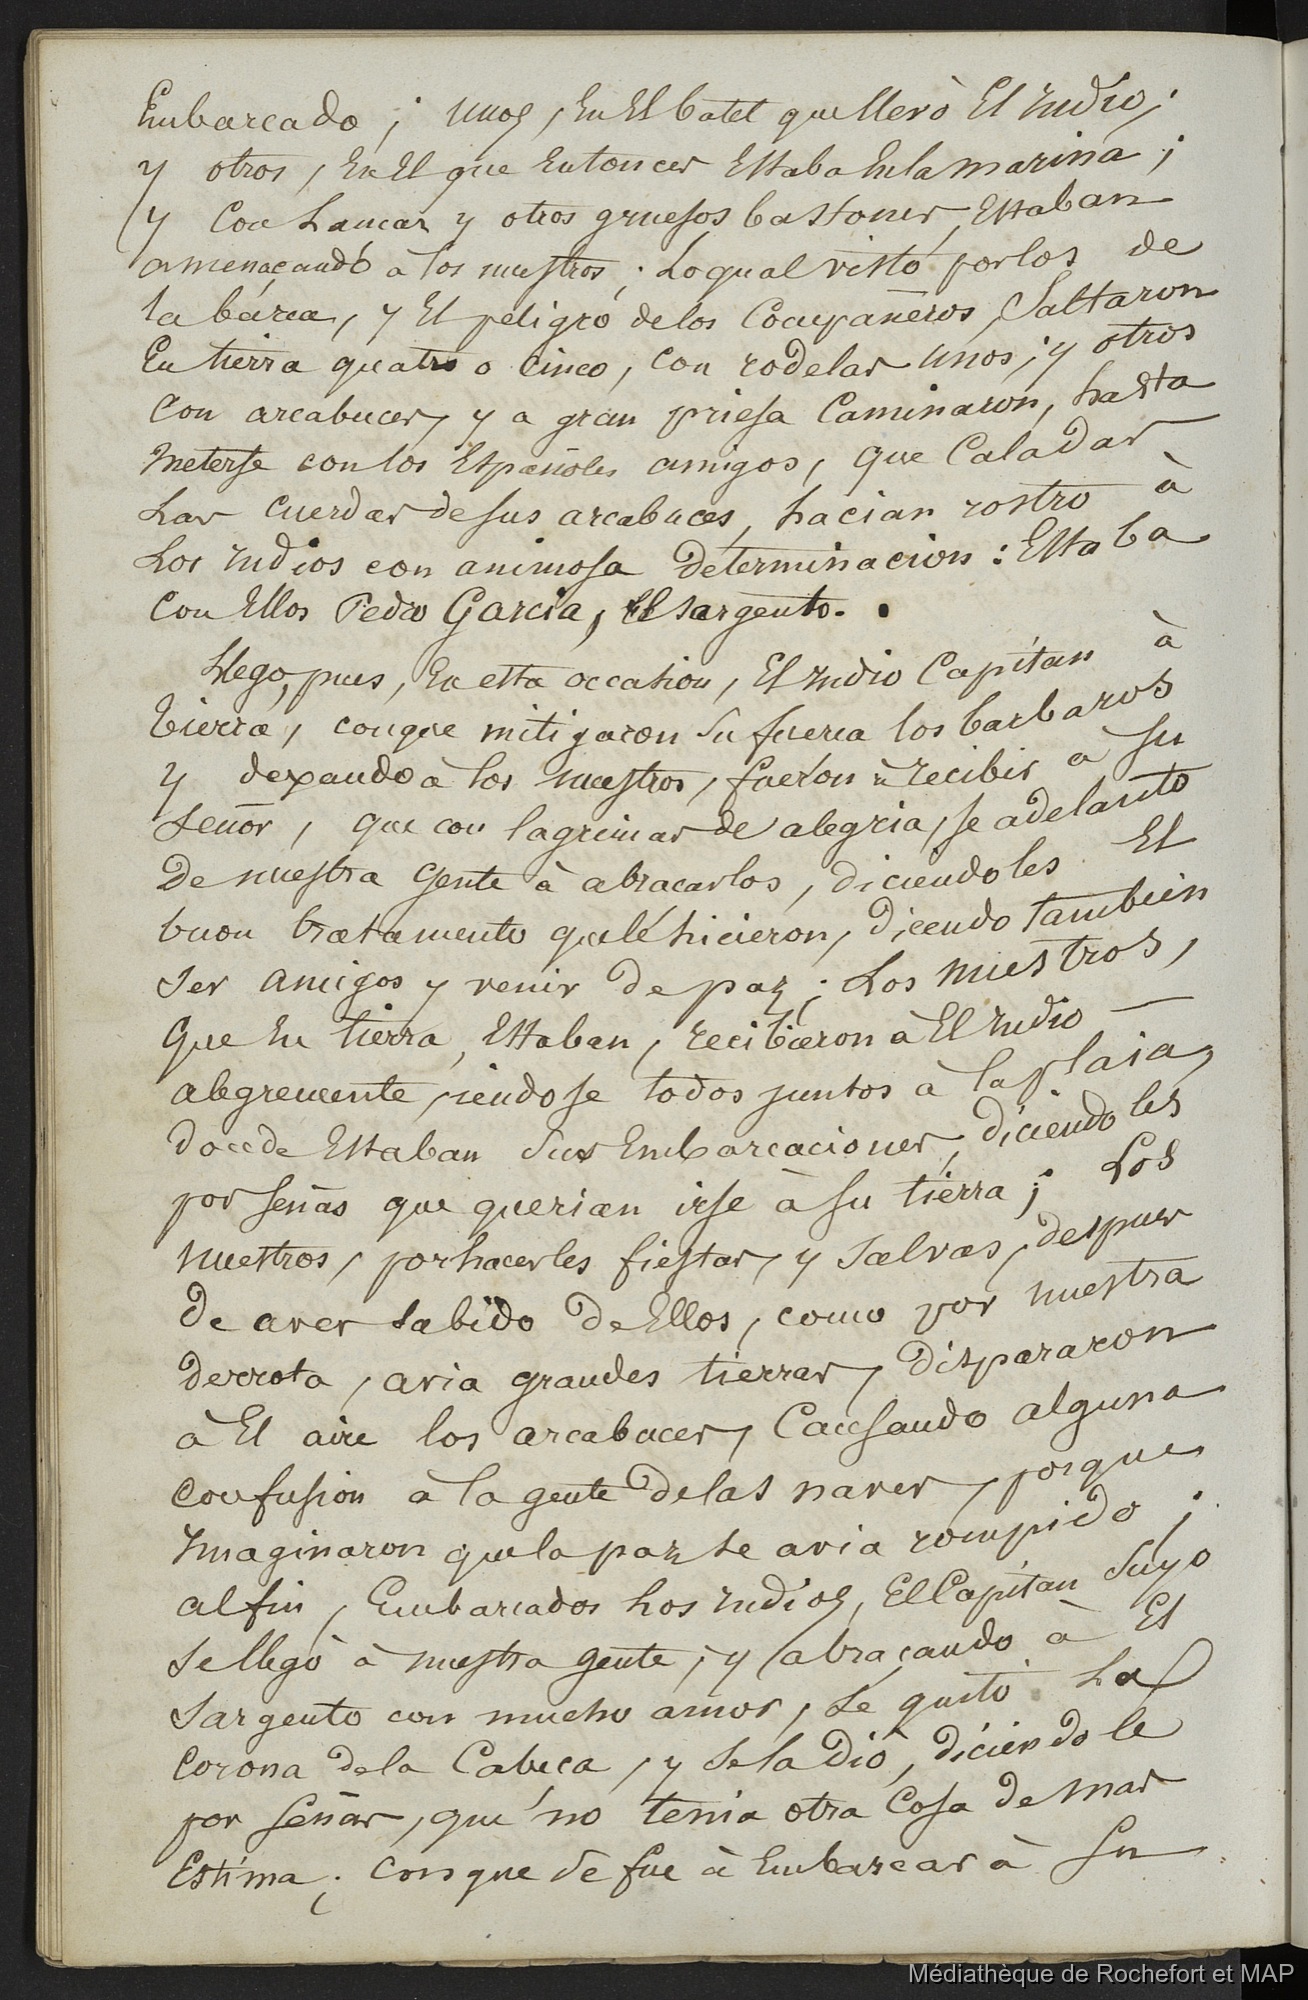 Embarcado; unos, En El batel que llevò El Indio;
y otros, En El que Entonces Estaba En la marina;
y Con Lanças y otros gruesos bastones Estaban
amenaçando à los nuestros; Lo qual visto por los de
la bárca, y El peligró de lós Compañeros, Saltaron
En tierra quatro o Cinco, con rodelas unos; y otros
con arcabuces, y a gran priesa Caminaron, hasta
Meterse con los Españoles amigos, que Caladas
Las cuerdas de sus arcabuces, hacian rostro à
Los Indios con animosa determinacion: Estaba
Con Ellos Pedro Garcia, El sargento.
Llego, pues, En esta occasion, El Indio Capitan à
tierra, conque mitigaron Su fuerça los barbaros
y dexando à los nuestros, fueron à recibir a su
Señor, que con lagrimas de alegria, se adelanto
De nuestra gente à abracarlos, diciendoles El
buon tratamento quele hicieron, diciendo tambien
Ser amigos y venir de paz; Los nuestros,
que En tierra, Estaban, recibieron à El Indio
alegremente, iendose todos juntos à la plaia,
donde Estaban Sus Embarcaciones, diciendoles
por señas que querian irse à su tierra; Los
nuestros, por hacerles fiestas, y salvas, despues
de aver sabido de Ellos, como por nuestra
derrota, avia grandes tierras, dispararon
à El aire los arcabuces, Causando alguna
confusion a la gente de las naves, porque
Imaginaron que la paz se avia rompido;
al fin, Embarcados Los Indios, El Capitan Suyo
Se llegò à nuestra gente; y abraçando à El
Sargento con mucho amor, Se quito La
Corona de la Cabeca, y Se la dió, diciendole
por Señas, que no tenia otra Cosa de mas
Estima; conque se fue à Embarcar à Su
Médiathèque de Rochefort et MAP